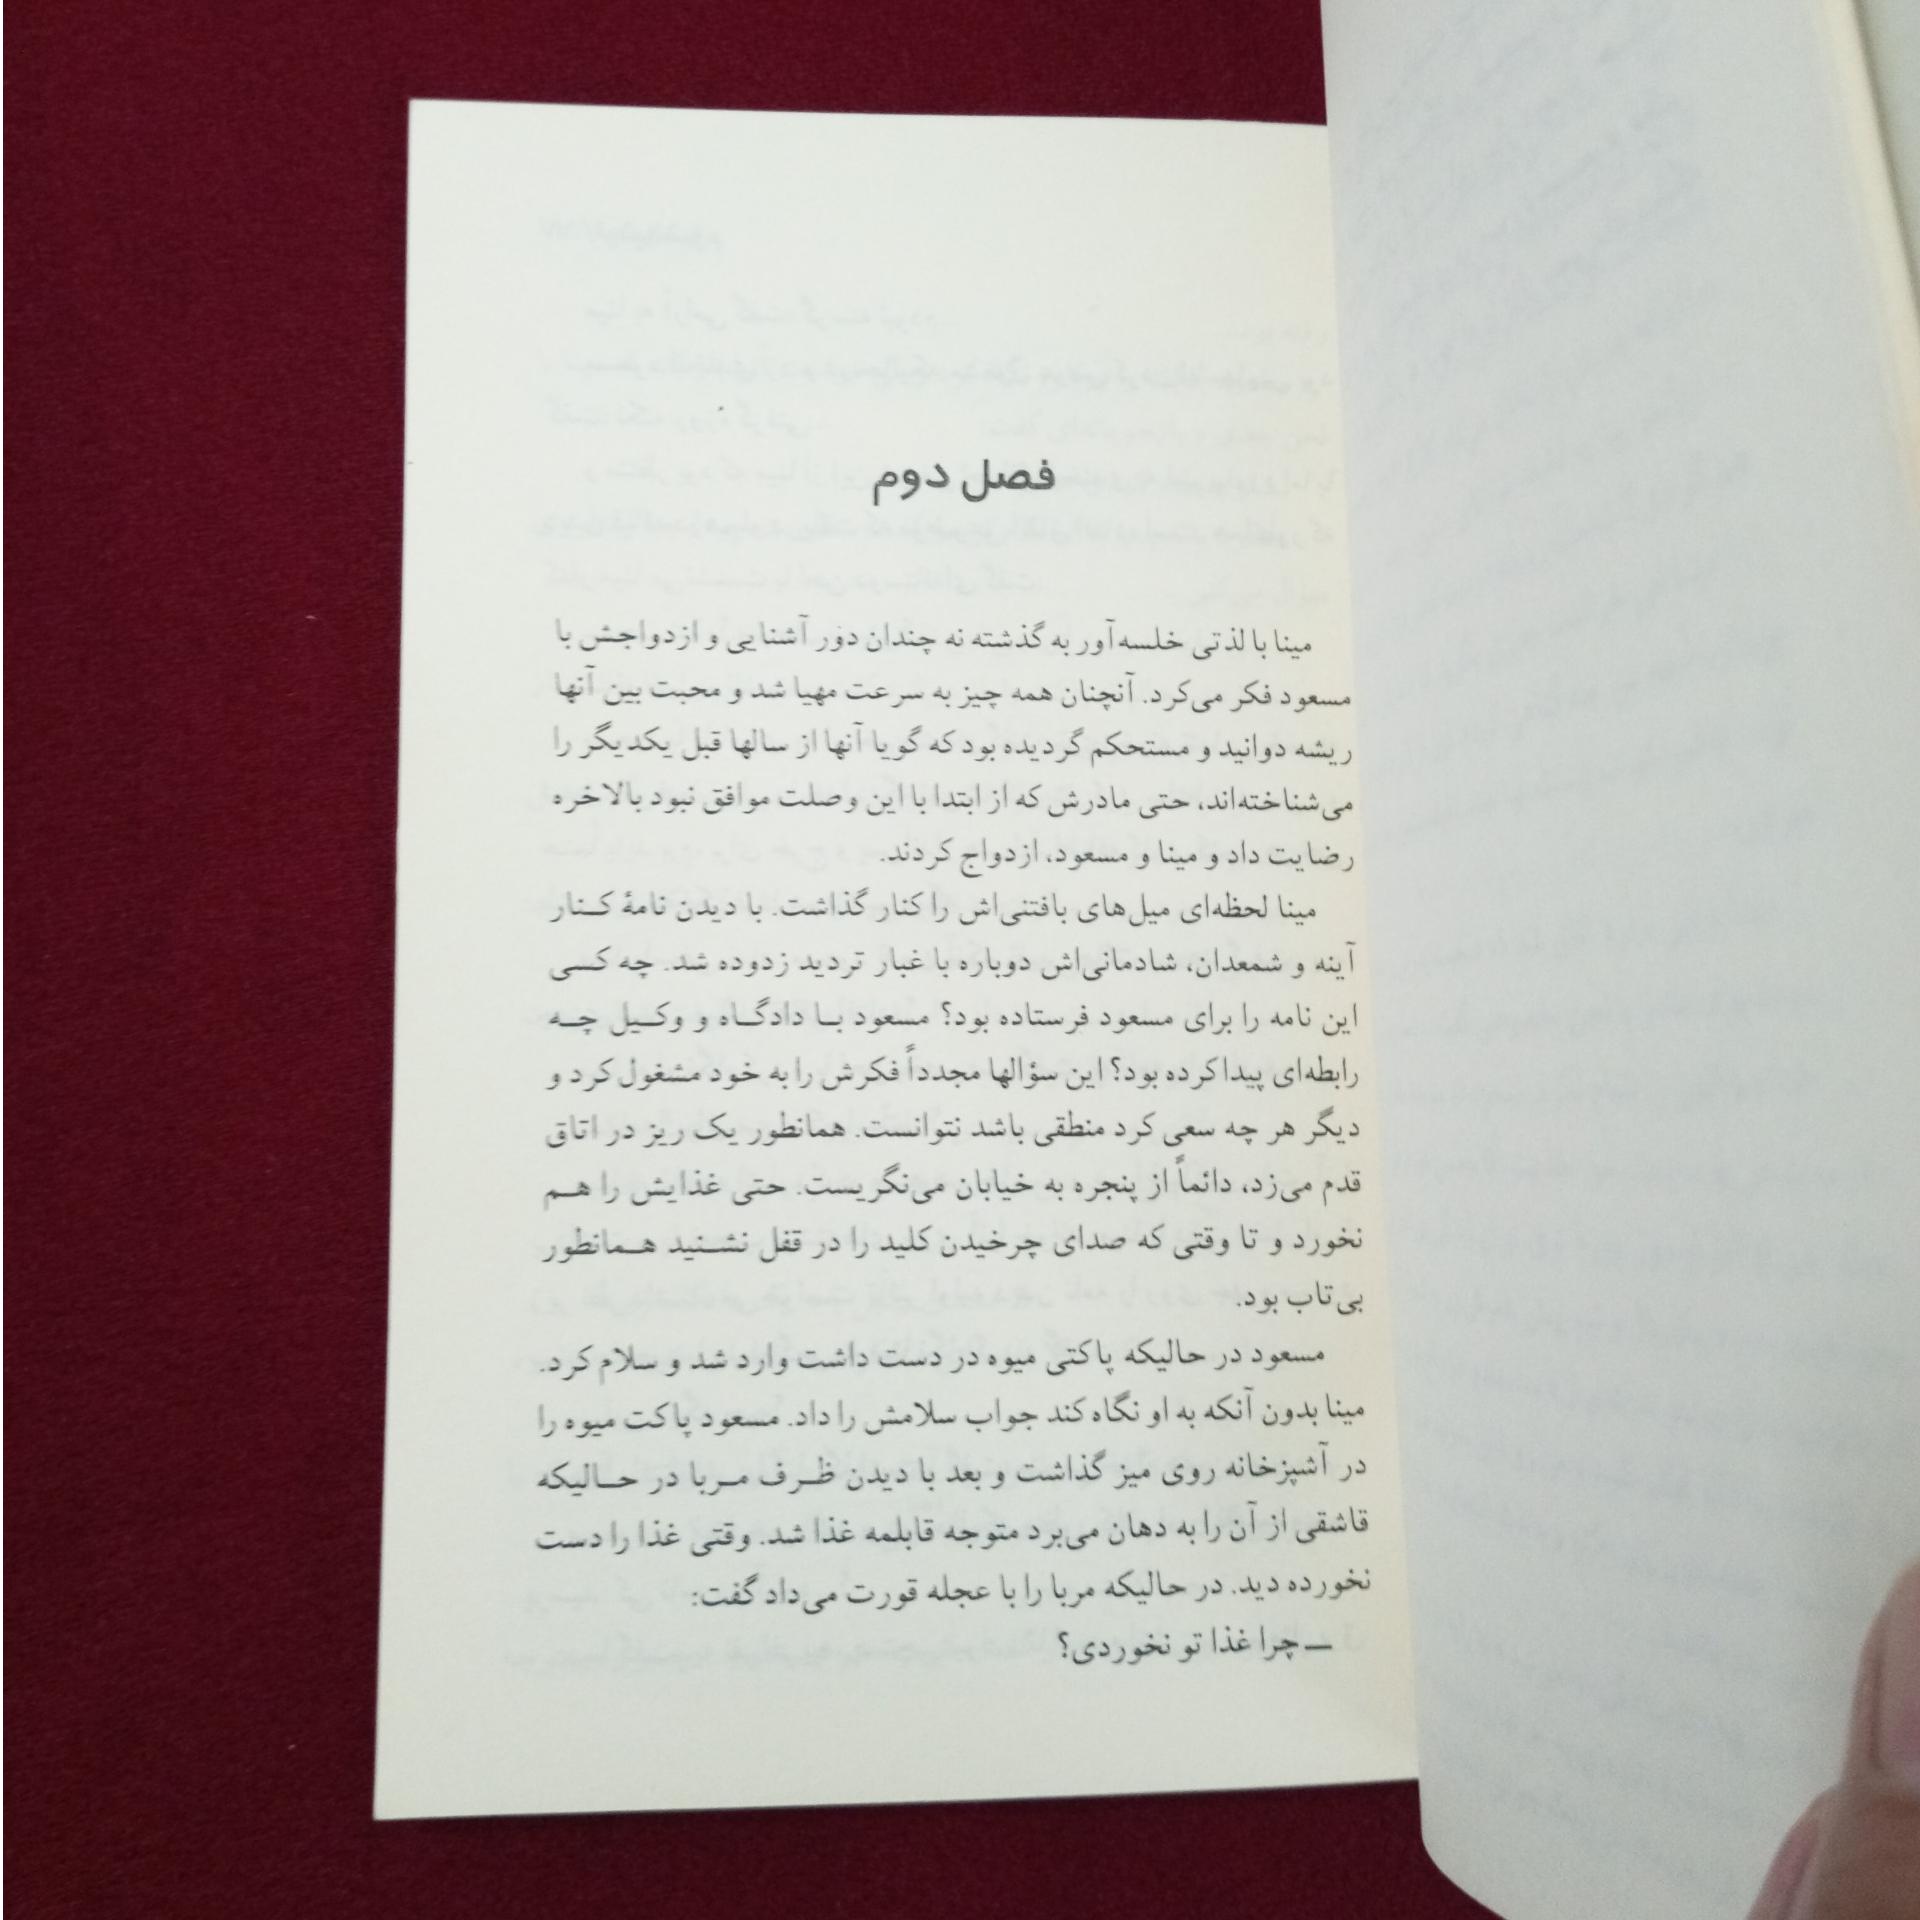 فصل دوم
مینا با لذتی خلسه‌آور به گذشته نه چندان دور آشنایی و ازدواجش با
مسعود فکر می‌کرد. آنچنان همه چیز به سرعت مهیا شد و محبت بین آنها
ریشه دوانید و مستحکم گردیده بود که گویا آنها از سالها قبل یکدیگر را
می‌شناخته‌اند، حتی مادرش که از ابتدا با این وصلت موافق نبود بالاخره
رضایت داد و مینا و مسعود، ازدواج کردند.
مینا لحظه‌ای میل‌های بافتنی‌اش را کنار گذاشت. با دیدن نامهٔ کنار
آینه و شمعدان، شادمانی‌اش دوباره با غبار تردید زدوده شد. چه کسی
این نامه را برای مسعود فرستاده بود؟ مسعود با دادگاه و وکیل چه
رابطه‌ای پیدا کرده بود؟ این سؤالها مجدداً فکرش را به خود مشغول کرد و
دیگر هر چه سعی کرد منطقی باشد نتوانست. همانطور یک ریز در اتاق
قدم می‌زد، دائماً از پنجره به خیابان می‌نگریست. حتی غذایش را هم
نخورد و تا وقتی که صدای چرخیدن کلید را در قفل نشنید همانطور
بی‌تاب بود.
مسعود در حالیکه پاکتی میوه در دست داشت وارد شد و سلام کرد.
مینا بدون آنکه به او نگاه کند جواب سلامش را داد. مسعود پاکت میوه را
در آشپزخانه روی میز گذاشت و بعد با دیدن ظرف مربا در حالیکه
قاشقی از آن را به دهان می‌برد متوجه قابلمه غذا شد. وقتی غذا را دست
نخورده دید. در حالیکه مربا را با عجله قورت می‌داد گفت:
— چرا غذا تو نخوردی؟